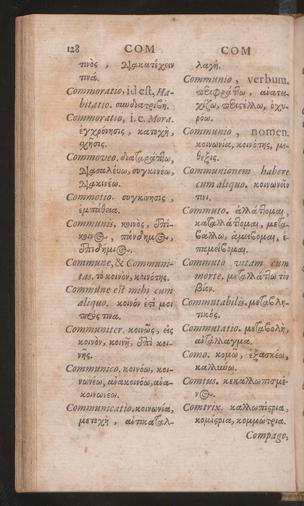 128 COM COM
τινὸς, διακατέχειν
τινά.
Commoratio, id est, Ha-
bitatio. συνδιατριβή.
Commoratio, i. e. Mora.
ἐγχρόνησις, κατοχὴ,
σχῆσις.
Commoveo. διαταράττω,
διασαλεύω, συγκινέω,
διακινέω.
Commotio. συγκίνησις,
ἐμπάθεια.
Communis. κοινὸς, ἐπί-
κοινος, πάνδημος,
ἐπιδήμιος.
Commune, & Communi-
tas. τὸ κοινὸν, κοινότης.
Commune est mihi cum
aliquo. κοινόν ἐστί μοι
πρός τινα.
Communiter. κοινῶς, εἰς
κοινὸν, κοινῇ, ἐπὶ κοι-
νῆς.
Communico. κοινόω, κοι-
νωνέω, ἀνακοινόω, ἀνα-
κοινωνέω.
Communicatio. κοινωνία,
μετοχὴ, ἀντικαταλ-
λαγή.
Communio, verbum.
περιφράττω,
περιτειχίζω, ὀχυ-
ρόω.
Communio, nomen.
κοινωνία, κοινότης, μέ-
θεξις.
Communionem habere
cum aliquo. κοινωνεῖν
τινι.
Commuto. ἀλλάττομαι,
καταλλάττομαι, μετα-
βάλλω, ἀμείβομαι, ἐ-
παμείβομαι.
Commuto vitam cum
morte. μεταλλάττω τὸν
βίον.
Commutabilis. μεταβλη-
τικός.
Commutatio. μεταβολὴ,
ἀντάλλαγμα.
Como. κομῶ, ἐξασκέω,
καλλύνω.
Comtus. κεκαλλωπισμέ-
νος.
Comtrix. καλλωπίστρια,
κομίστρια, κομμώτρια.
Compago,